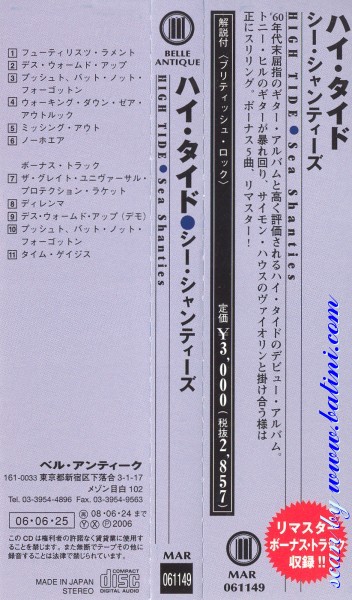 1 フューティリスツ・ラメント
2 デス・ウォームド・アップ
3 プッシュト、バット・ノット・
フォーゴットン
4 ウォーキング・ダウン・ゼア・
アウトルック
5 ミッシング・アウト
6 ノーホエア
ボーナス・トラック
7 ザ・グレイト・ユニヴァーサル・
プロテクション・ラケット
8 ディレンマ
9 デス・ウォームド・アップ(デモ)
10 プッシュト、バット・ノット・
フォーゴットン
11 タイム・ゲイジス
ベル・アンティーク
161-0033 東京都新宿区下落合3-1-17
メゾン目白 102
Tel. 03-3954-4896 Fax. 03-3954-9563
06・06・25
Ⓧ08・06・24まで
ⓎⓍⓅ2006
このCDは権利者の許諾なく賃貸業に使用す
ることを禁じます。また無断でテープその他に
録音することは法律で禁じられています。
MADE IN JAPAN
STEREO
COMPACT
disc
DIGITAL AUDIO
BELLE
ANTIQUE
HIGH TIDE●Sea Shanties
ハイ・タイド●シー・シャンティーズ
MAR
061149
解説付〈ブリティッシュ・ロック〉
定価¥3,000(税抜2,857)
MAR
061149
ハイ・タイド
シー・シャンティーズ
HIGH TIDE●Sea Shanties
'60年代末屈指のギター・アルバムと高く評価されるハイ・タイドのデビュー・アルバム。
トニー・ヒルのギターが暴れ回り、サイモン・ハウスのヴァイオリンと掛け合う様は
正にスリリング。ボーナス5曲、リマスター!
リマスター
ボーナス・トラック
収録!!
scan by www.batini.com